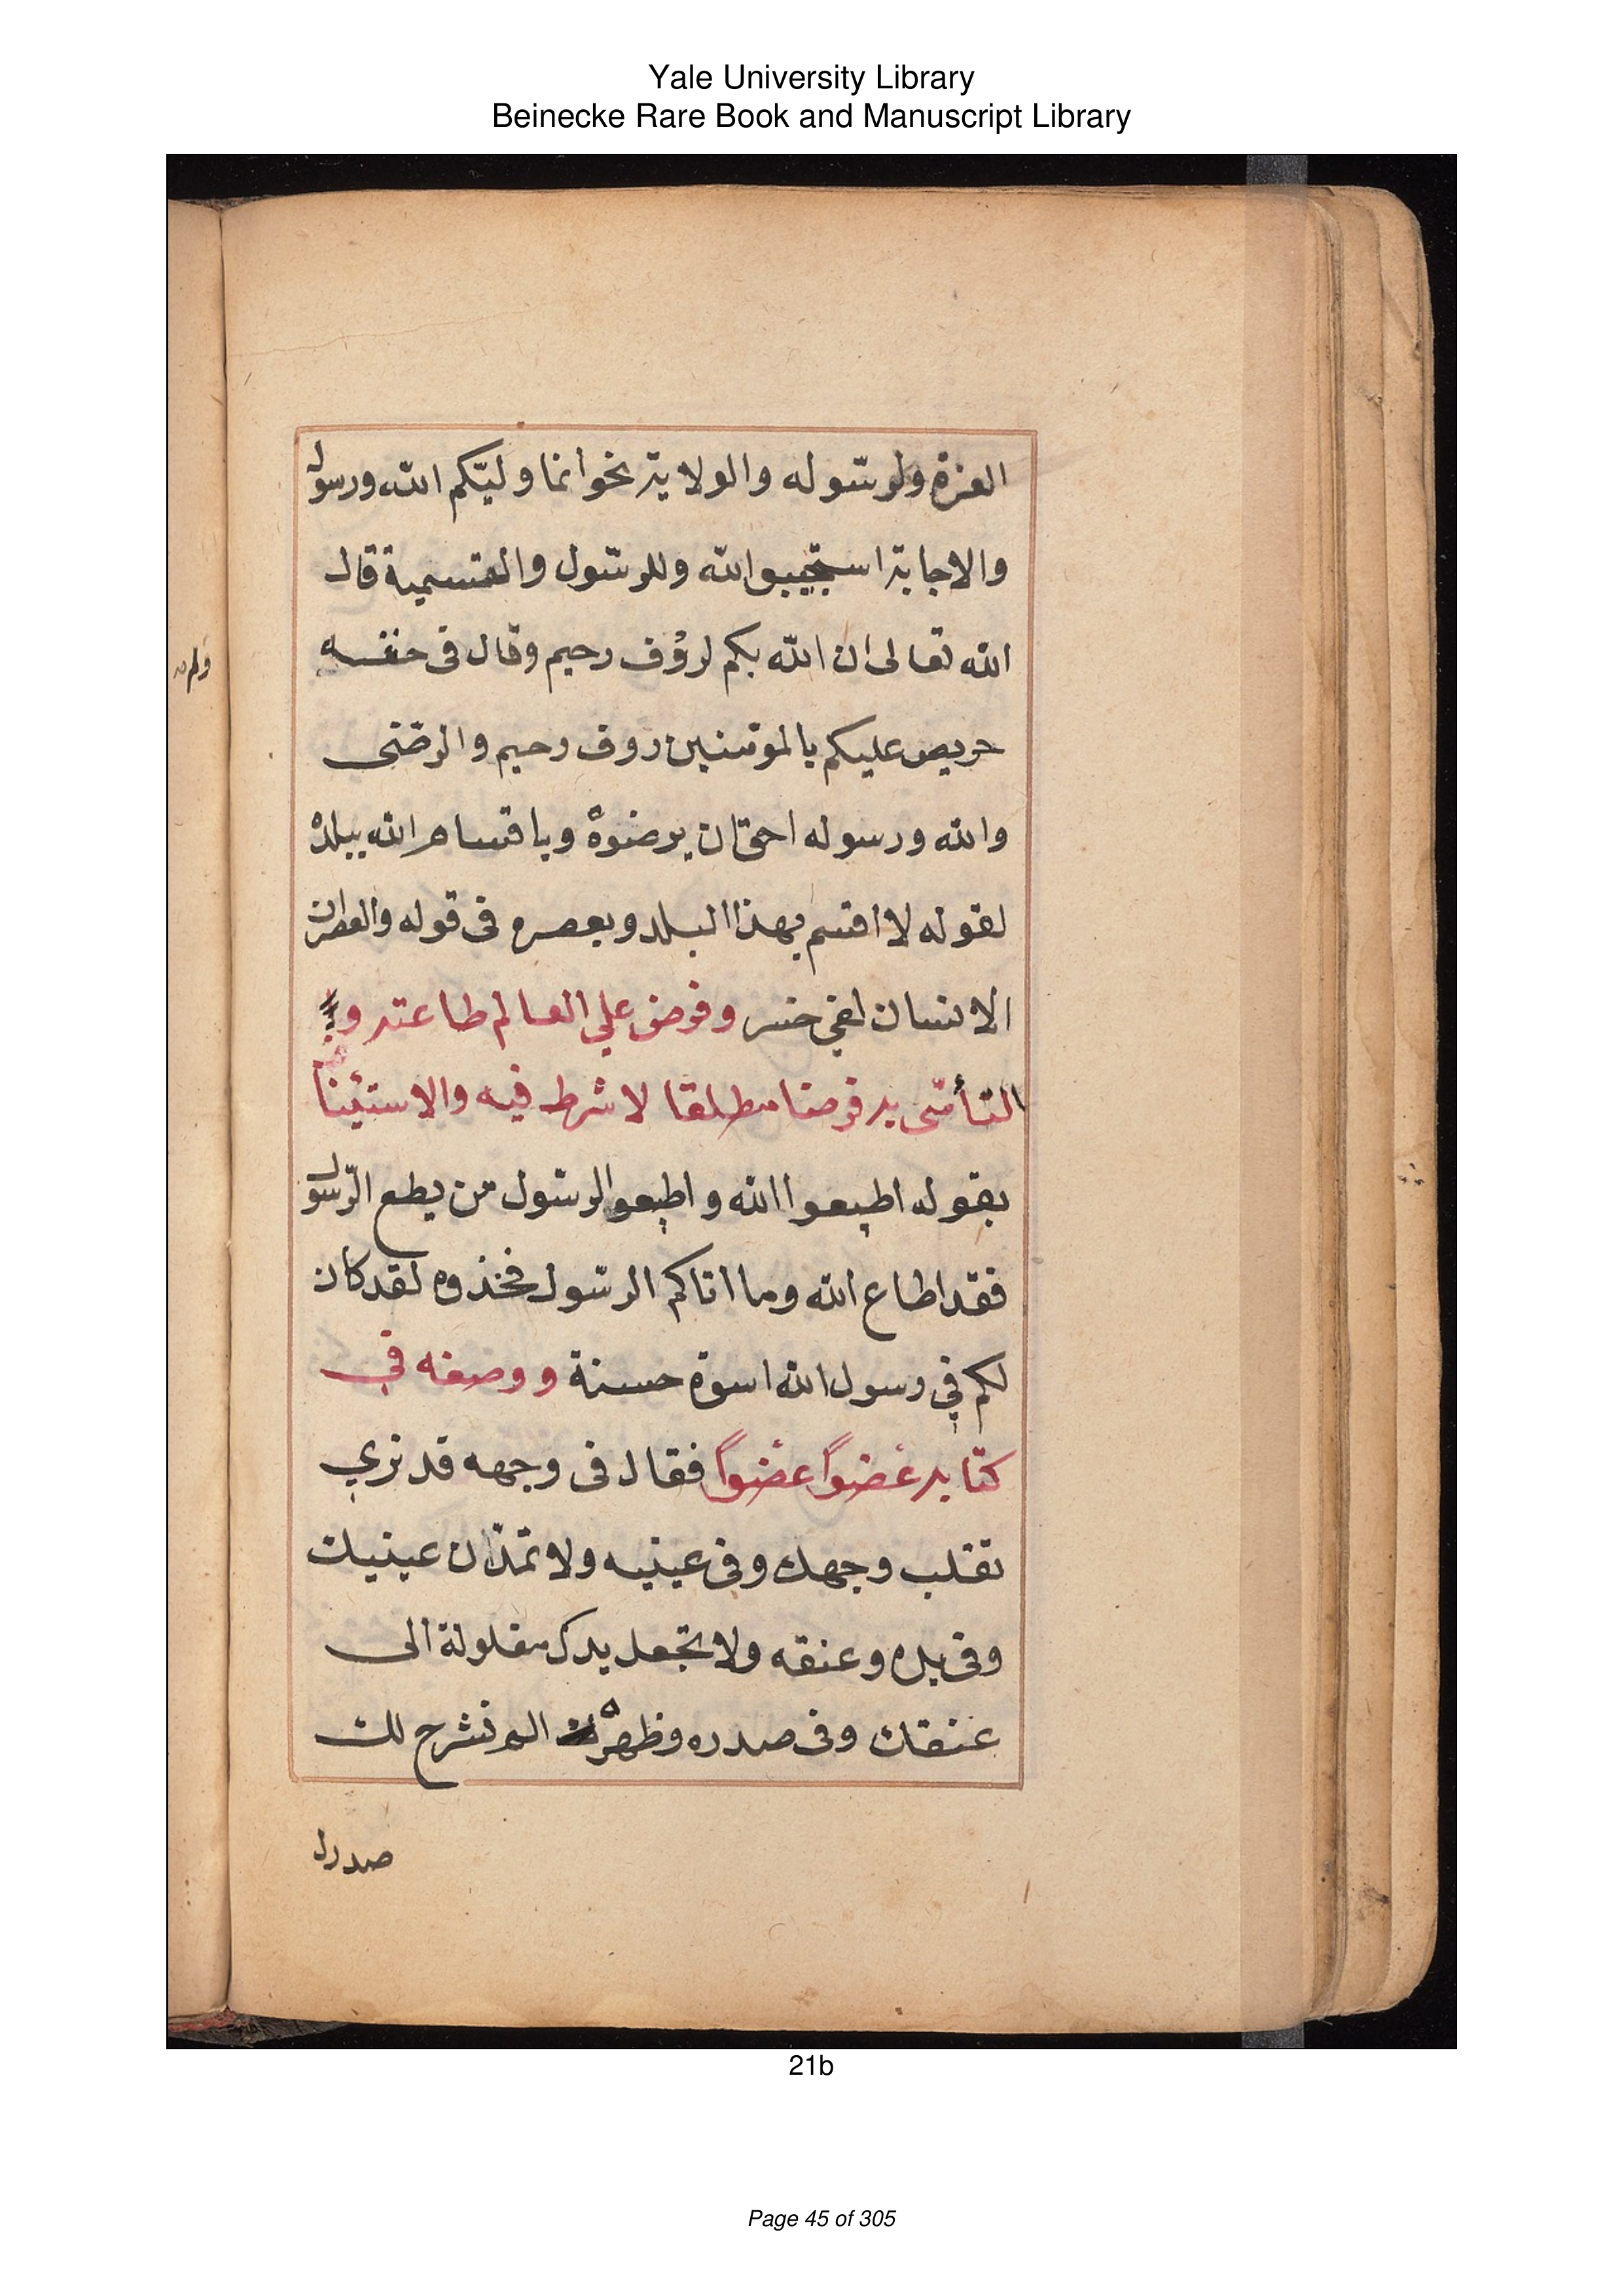 Yale University Library
Beinecke Rare Book and Manuscript Library
العزة ولرسوله والولاية نحو انما وليّكم الله ورسول
والاجابة استجيبوا لله وللرسول والتسمية قال
الله تعالى ان الله بكم لرؤف رحيم وقال فى
حريص عليكم بالمؤمنين روف رحيم والرضى
والله ورسوله احق ان يرضوه وباقسام الله ببلده
لقوله لا اقسم بهذا البلد وبعصره فى قوله والعصر ان
الانسان لفي خسر وفرض علي العالم طاعته و
التأسّى به فرضا مطلقا لا شرط فيه والاستثنا
بقوله اطيعوا الله واطيعوا الرسول من يطع الرّسول
فقد اطاع الله وما اتاكم الرسول فخذوه لقد كان
لكم في رسول الله اسوة حسنة ووصفه في
كتابه عضواً عضواً فقال فى وجهه قد نري
تقلب وجهك وفى عينيه ولا تمدّن عينيك
وفى يده وعنقه ولا تجعل يدك مغلولة الى
عنقك وفى صدره وظهره الم نشرح لك
صدرك
21b
Page 45 of 305